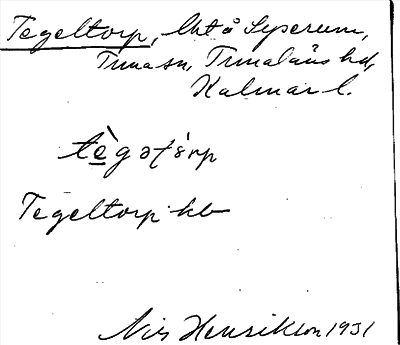 Tegeltorp, lht å Lyserum,
Tuna sn, Tunaläns hd,
Kalmar l.
tè̱gətórp
Tegeltorp kb
Nils Henrikson 1931